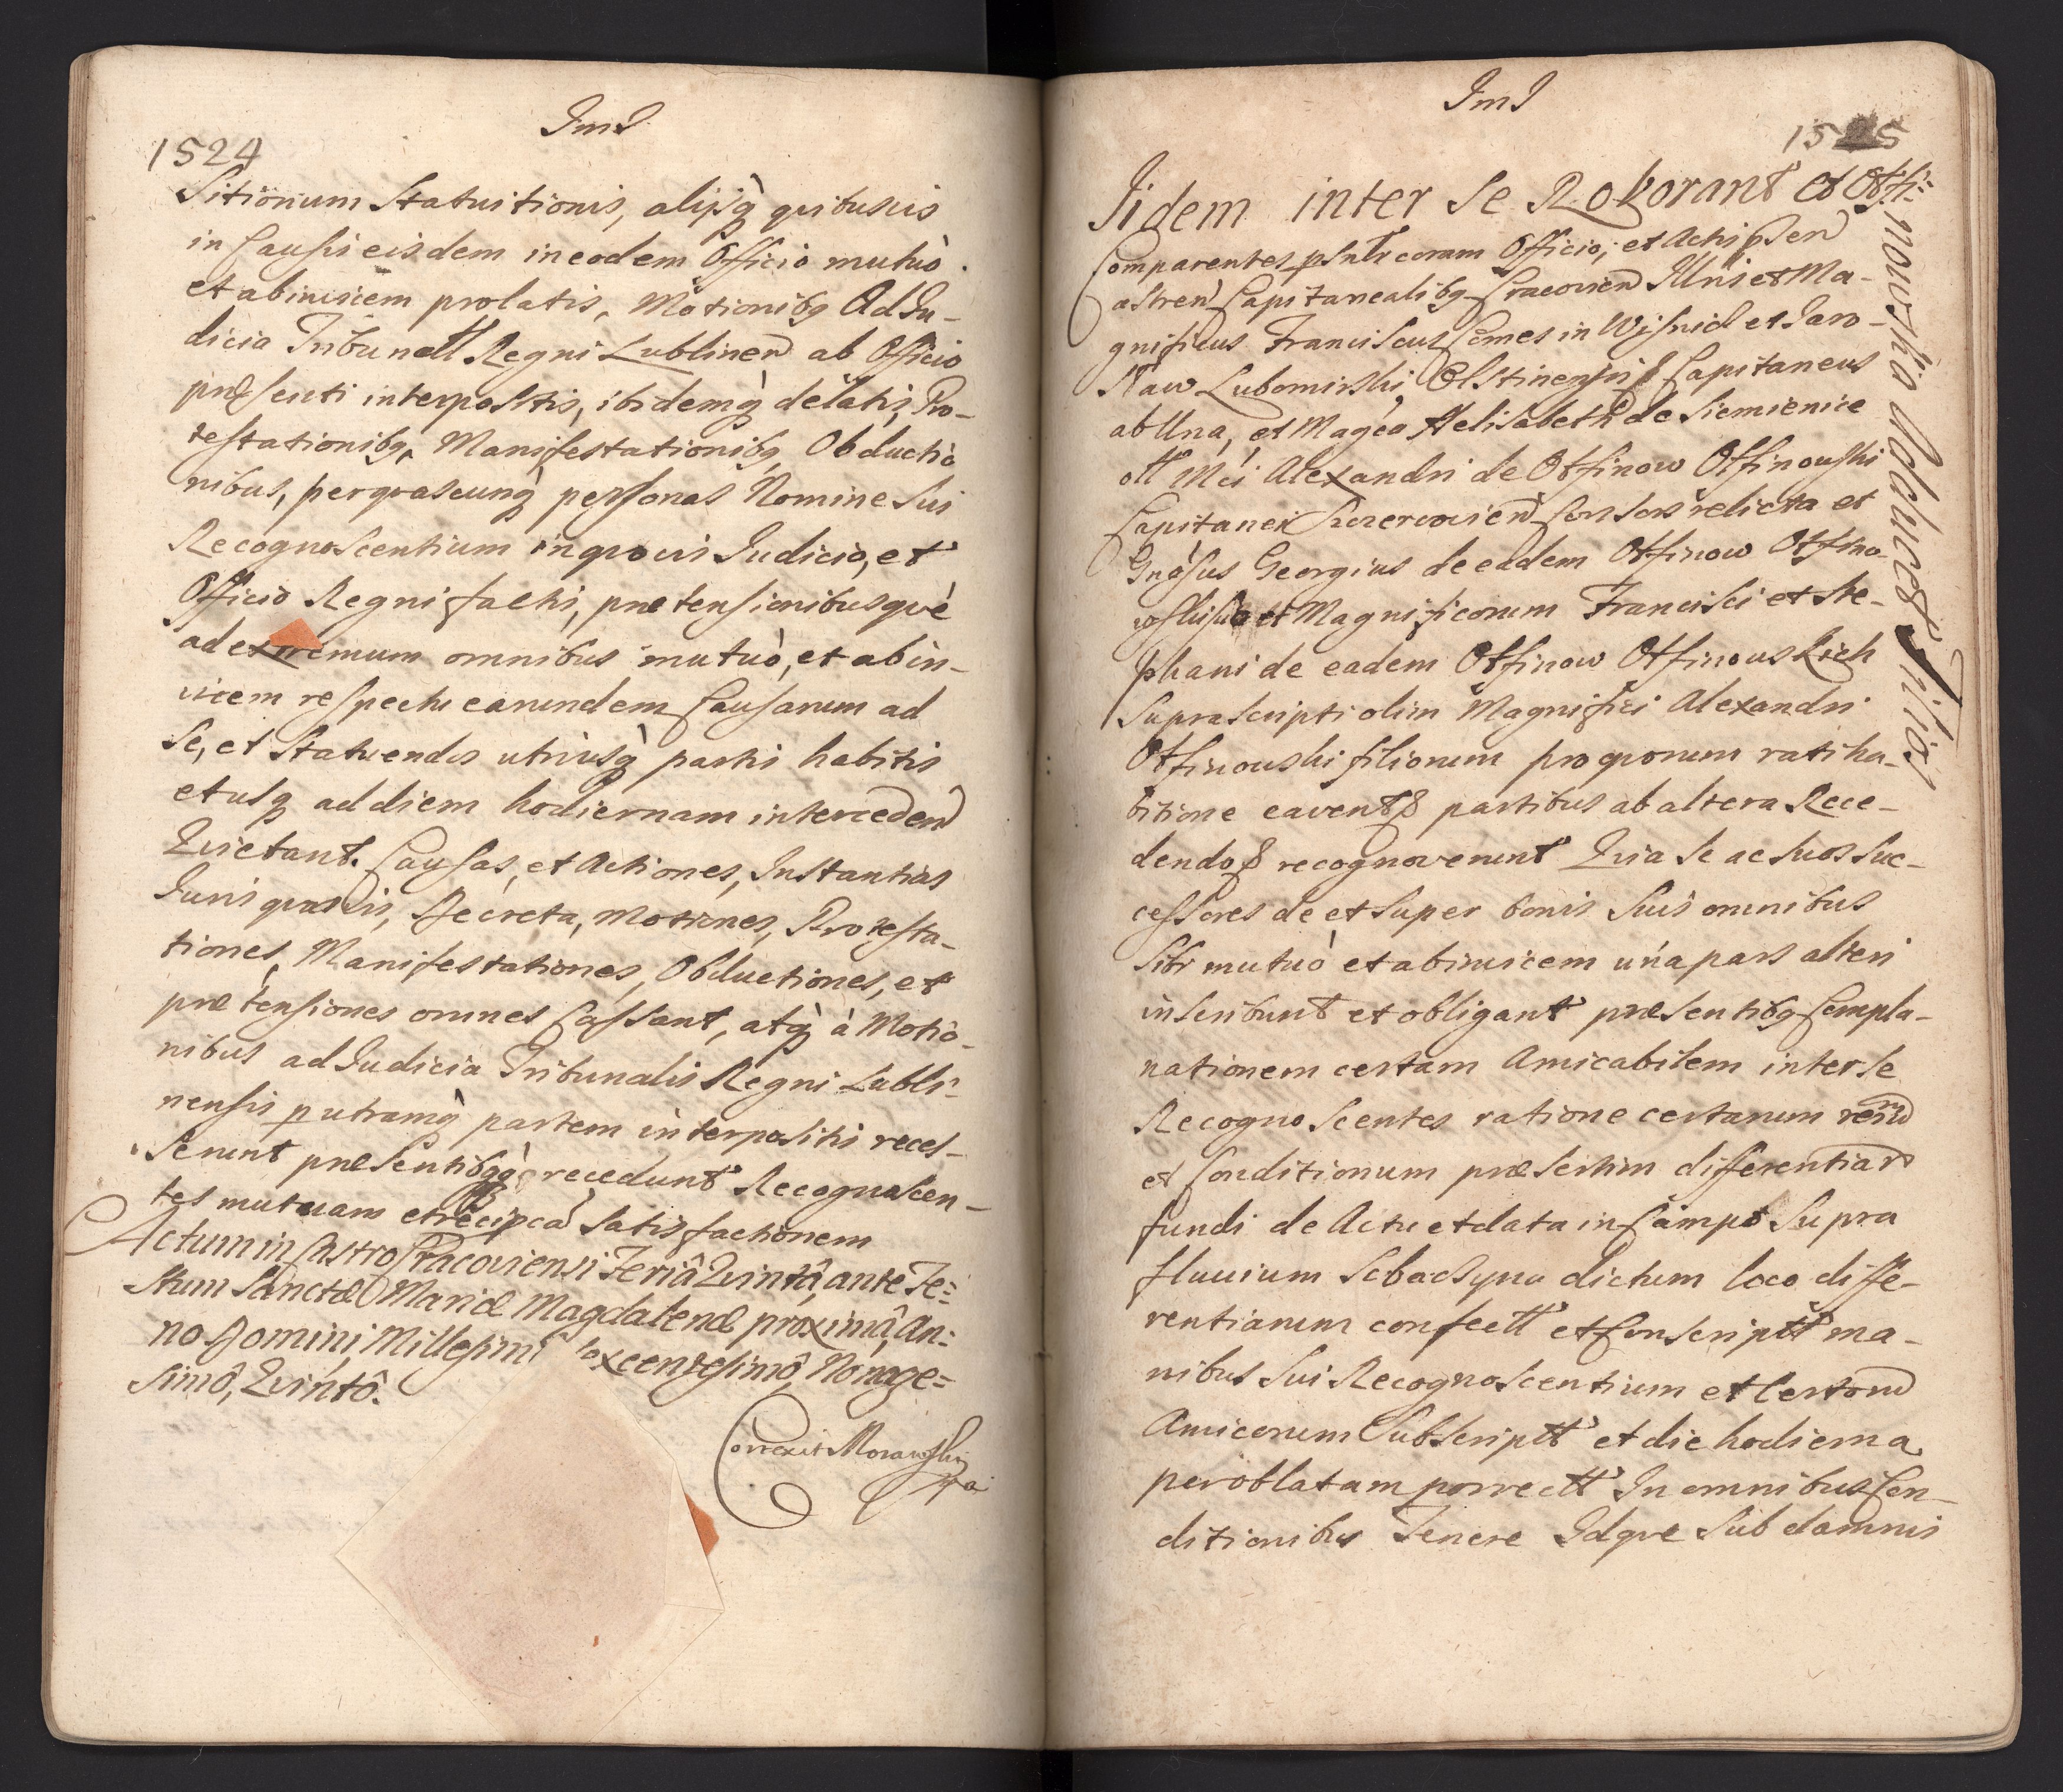 JmJ
1524
Sitionum Statuitionis, alijsq̀ quibusvis
in Causis eisdem in eodem Officio mutuò
et abinvicem prolatis, Motionibq Ad Ju-
dicia Tribunall Regni Lublinen ab Officio
præsenti interpositis, ibidemq̀ delatis, Pro-
testationibq, Manifestationibq Obductio
nibus, per quascunq̀ personas Nomine Sui
Recognoscentium in quovis Judicio, et
Officio Regni factis, prætensionibusquè
ad extremum omnibus mutuò, et abin-
vicem respectu earundem Causarum ad
Se, et Statuendos utriusq̀ partis habitis
et usq̀ ad diem hodiernam interceden
Quietant. Causas, et Actiones, Instantias
Juris quasvis, Decreta, Motiones, Protesta-
tiones, Manifestationes, Obductiones, et
prætensiones omnes Cassant, atq̀ à Motio-
nibus ad Judicia Tribunalis Regni Lubli-
nensis p utramq̀ partem interpositis reces-
serunt præsentibqq̀ recedunt Recognoscen-
tes mutuam et recipcã Satisfactionem
Actum in Castro Cracoviensi Feriâ Quintâ, ante Fe=
stum Sanctæ Mariæ Magdalenæ proximâ, An=
no Domini Millesimô Sexcentesimô, Nonage=
simô, Quintô.
Correxit Morawski
JmJ
1525
Iidem inter Se Roborant et Otfi=
nowskio Adducet Filios
Comparentes psntr coram Officio, et Actis psen
castren Capitanealibq Cracovien Illris et Ma-
gnificus Franciscus Comes in Wisnicz et Jaro-
slaw Lubomirski, Olstinensis Capitaneus
ab Una, et Magca Helisabeth de Siemienice
oll Mci Alexandri de Otfinow Otfinowski
Capitanei Consors relicta et
Gnosus Georgius de eadem Otfinow Otfino-
wski suo et Magnificorum Francisci et Ste-
phani de eadem Otfinow Otfinowskich
Supra scripti olim Magnifici Alexandri
Otfinowski filionum pro quorum ratiha-
bitione cavent partibus ab altera Rece-
dendo recognoverunt Quia Se ac Suos Suc-
cessores de et Super bonis Suis omnibus
Sibi mutuò et abinvicem una pars alteri
inscribunt et obligant præsentibq Compla-
nationem certam Amicabilem inter Se
Recognoscentes ratione certarum rerum
et Conditionum præsertim differentiar
fundi de Actu et data in Campo Supra
fluvium dictum loco diffe-
rentiarum confectt et Conscriptt ma-
nibus Sui Recognoscentium et Certorm
Amicorum Subscriptt et die hodierna
per oblatam porrectt In omnibus Con-
ditionibus Tenere Idque Sub damnis